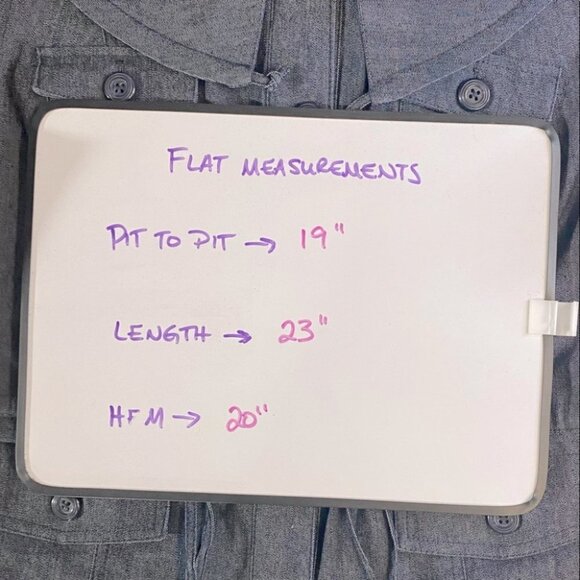 FLAT MEASUREMENTS
PIT TO PIT → 19"
LENGTH → 23"
HFM → 20"